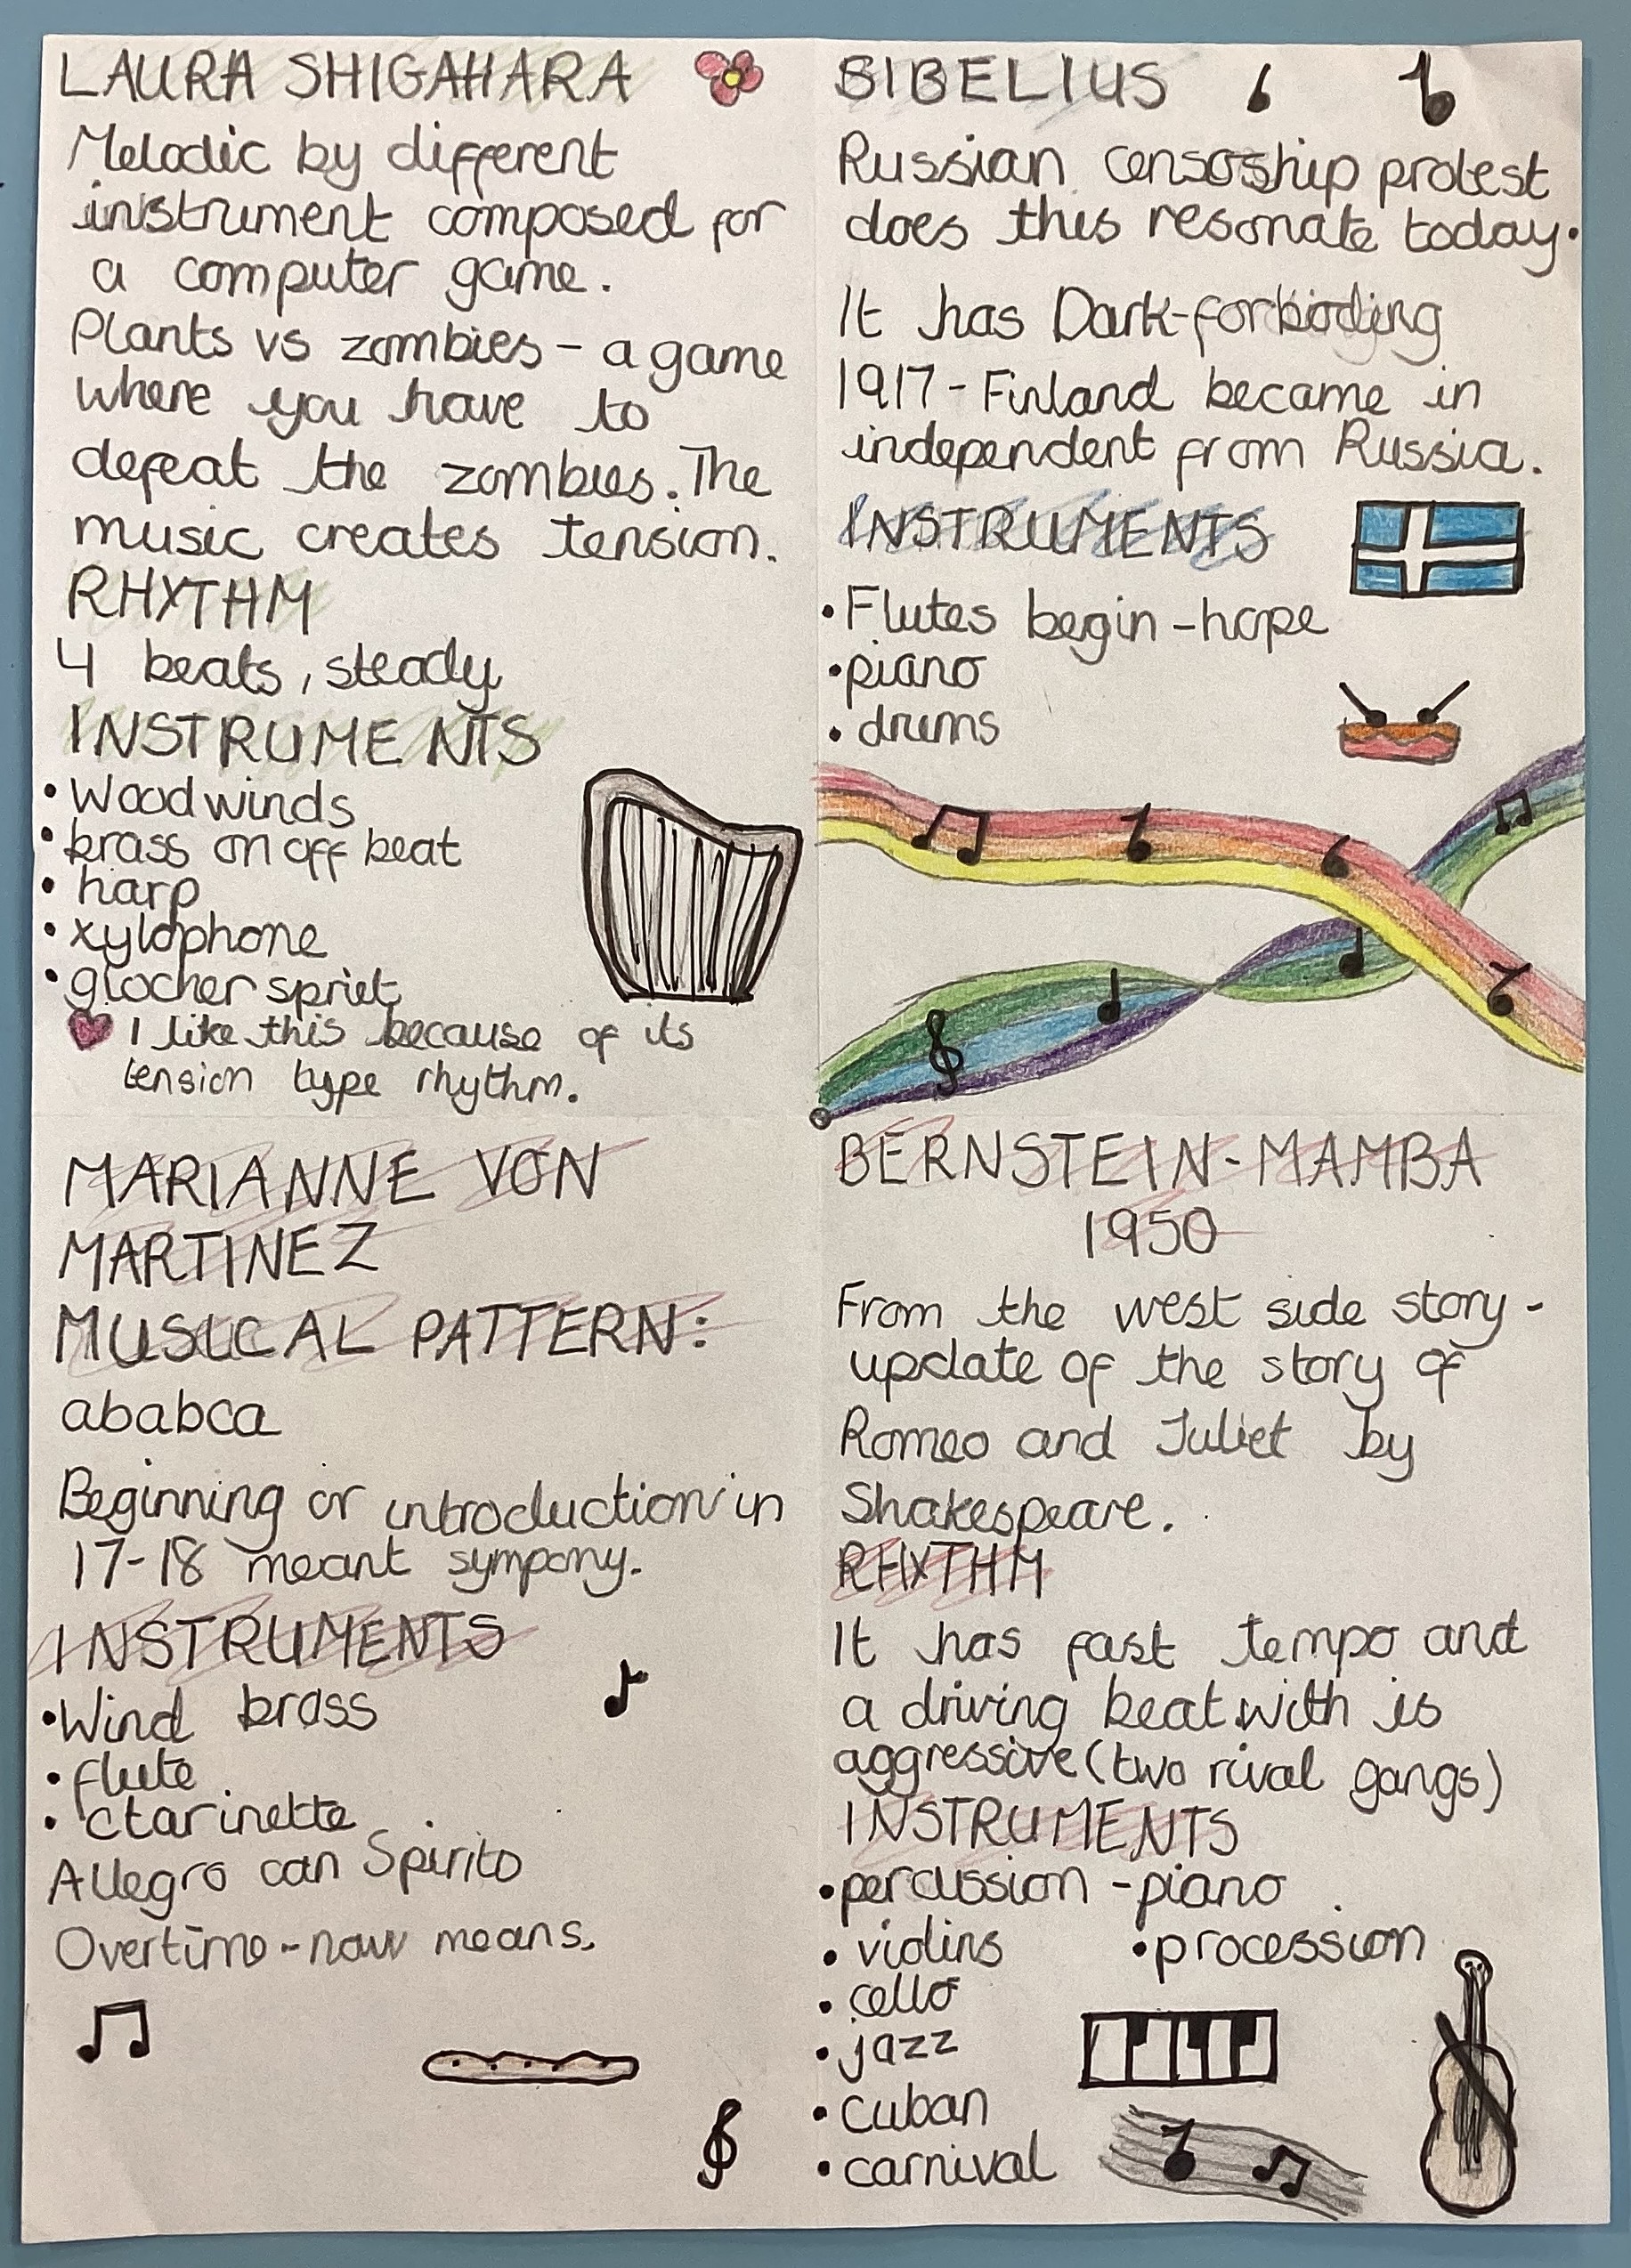 LAURA SHIGAHARA
Melodic by different
instrument composed for
a computer game.
Plants vs zombies - a game
where you have to
defeat the zombies. The
music creates tension.
RHYTHM
4 beats, steady
INSTRUMENTS
• Woodwinds
• brass on off beat
• harp
• xylophone
• glocher spriet
I like this because of its
tension type rhythm.
SIBELIUS
Russian censorship protest
does this resonate today.
It has Dark-forboding
1917 - Finland became in
independent from Russia.
INSTRUMENTS
• Flutes begin - hope
• piano
• drums
MARIANNE VON
MARTINEZ
MUSICAL PATTERN:
ababca
Beginning or introduction in
17-18 meant sympony.
INSTRUMENTS
• Wind brass
• flute
• ctarinette
Allegro can Spirito
Overtimo - now means.
BERNSTEIN - MAMBA
1950
From the west side story -
update of the story of
Romeo and Juliet by
Shakespeare.
RHYTHM
It has fast tempo and
a driving beat with is
aggressive (two rival gangs)
INSTRUMENTS
• percussion - piano
• violins • procession
• cello
• jazz
• cuban
• carnival